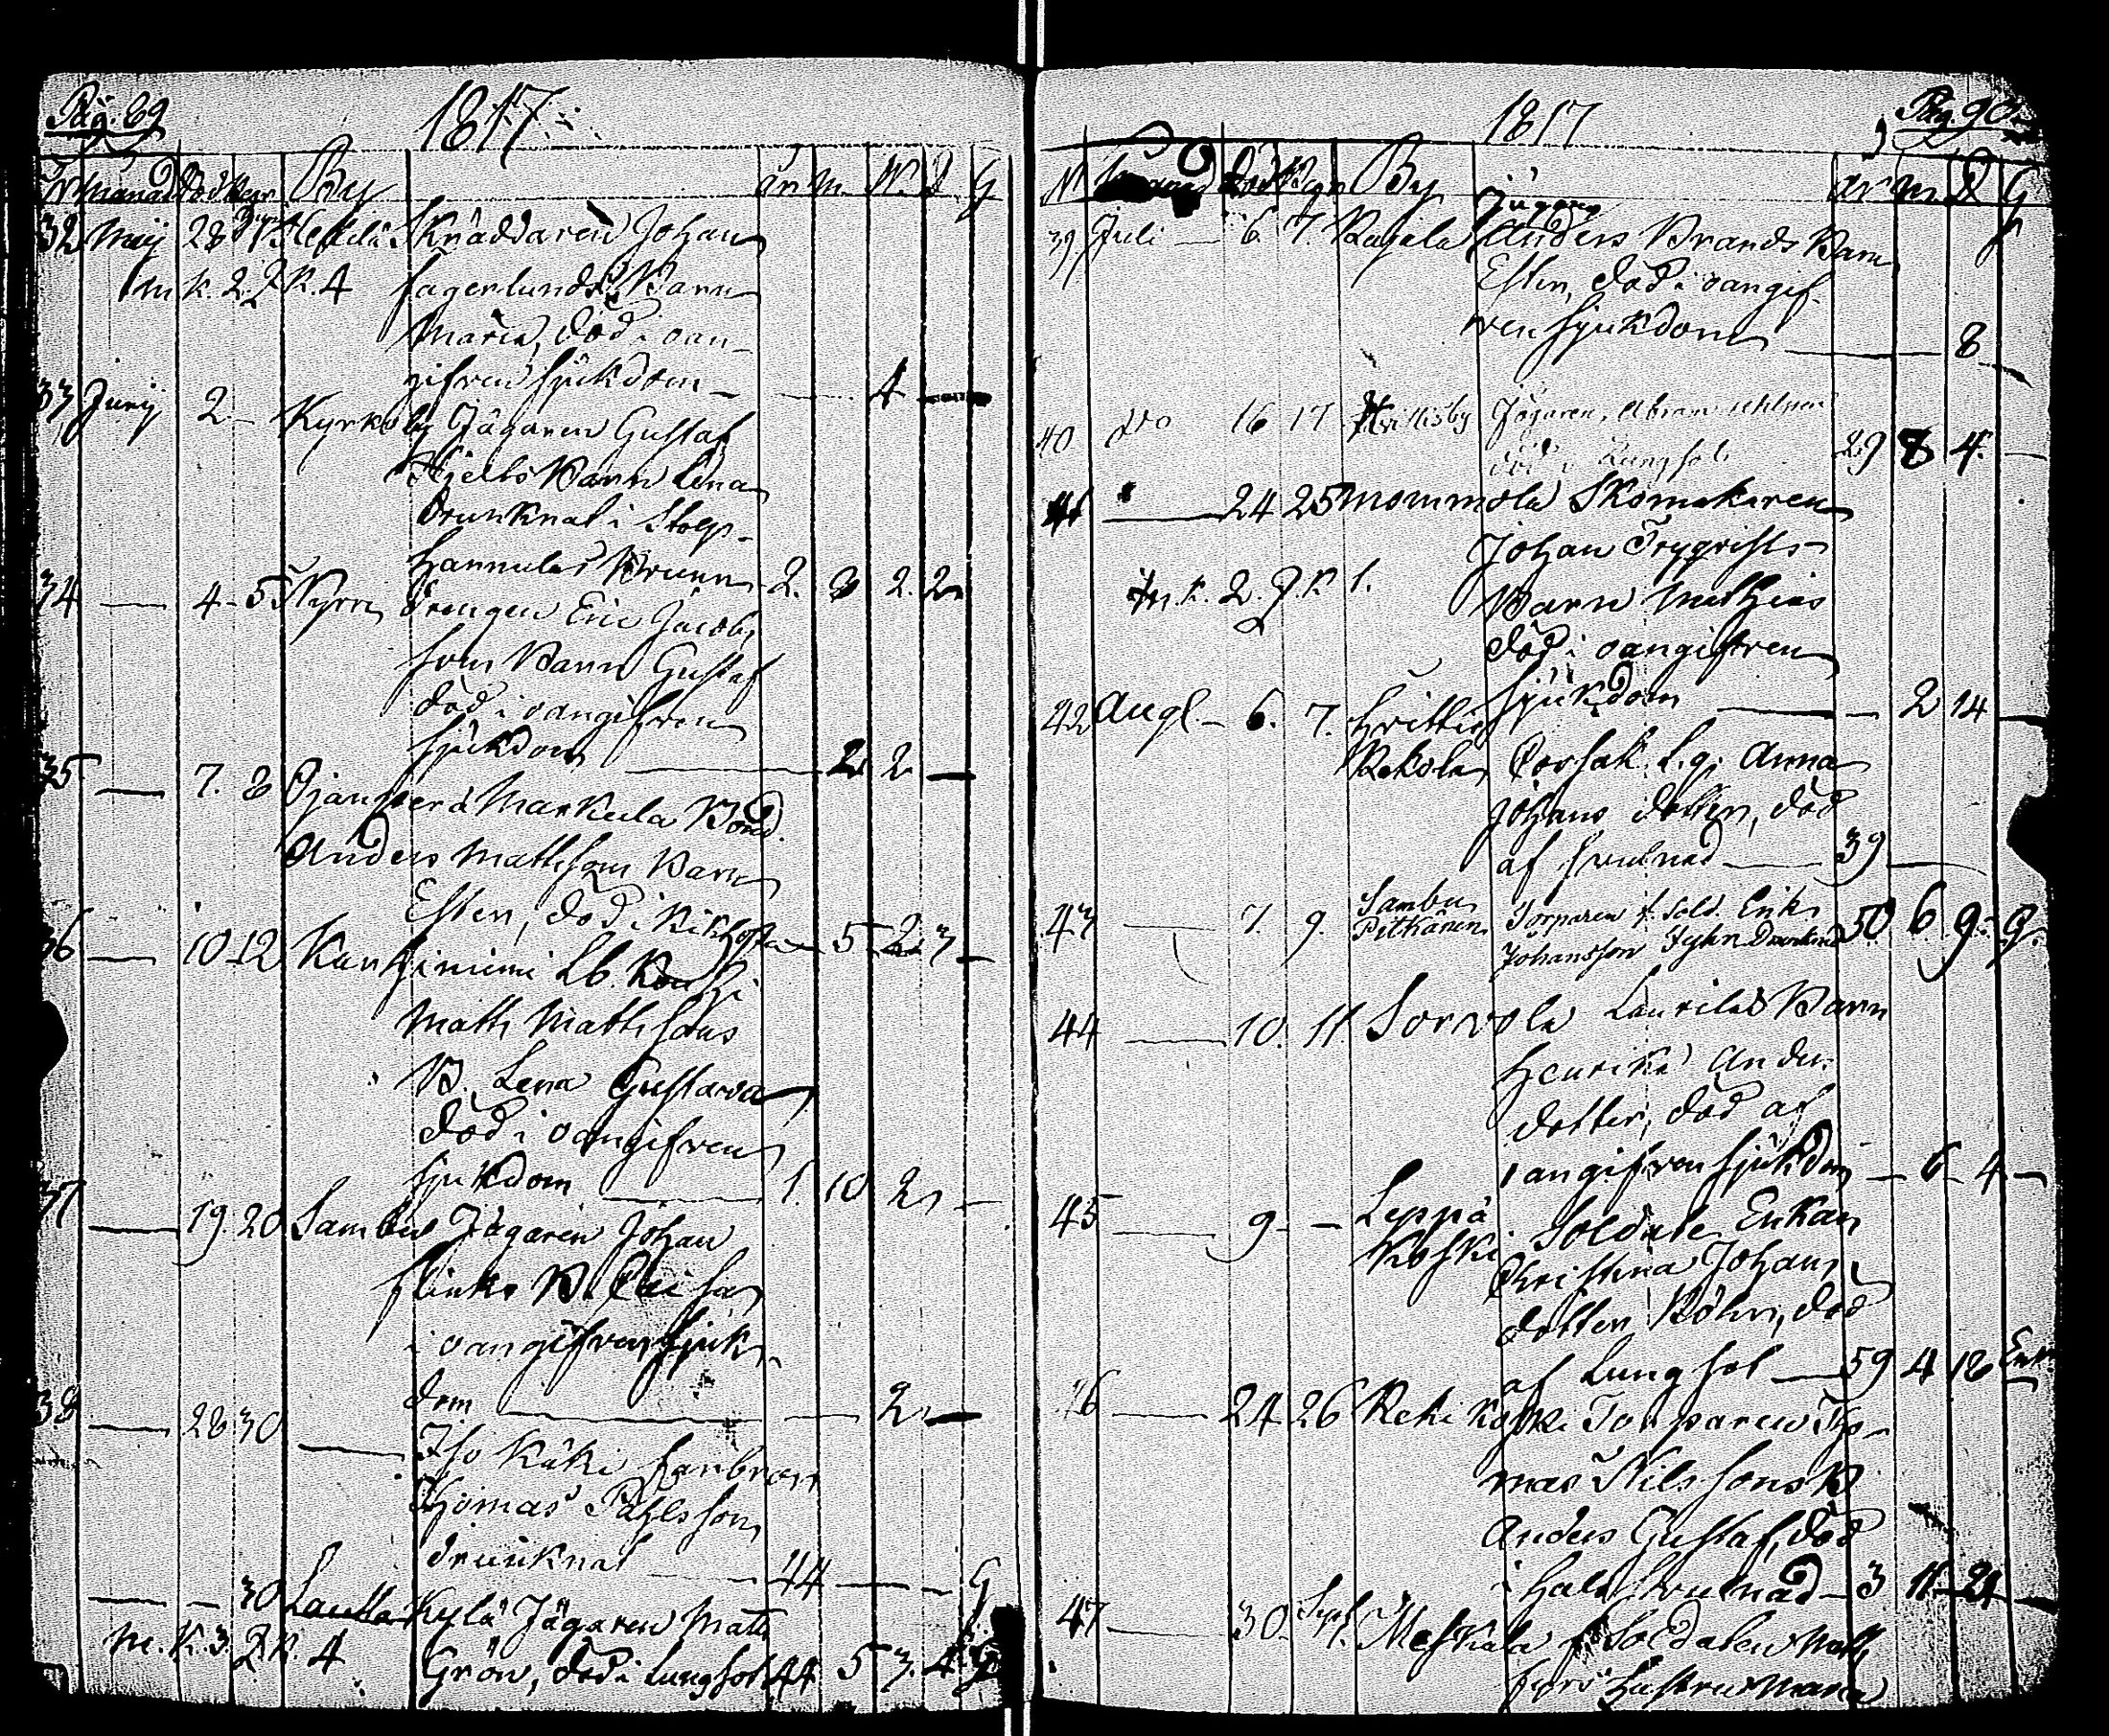 Pag. 89
1817
Månad Död Begr By år m. W. D G
32 Maij 28 Skräddaren Johan
m k. 2. q K. 4 Fagerlunds Barn
Maria, död i oan-
gifven sjukdom 4
33 Junij 2 Kyrkoby Jägaren Gustaf
Hjelts Barn Lena
drunknat i Stor-
Hannulas Brunn 2. 8 2. 2
34 4 5 Kyrö drengen Eric Jacobs
sons Barn Gustaf
död i oangifven
sjukdom 2 2
35 7. 8 Markula Bond.
Anders Mattsson Barn
Ester, död i kikhosta 5 2 3
36 10 12 Karhiniemi Lb. Karhi
Matts Mattssons
B. Lena Gustava
död i oangifven
sjukdom 1. 10 2
37 19. 20 Sambu Jägaren Johan
Flinks B.
i oangifven sjuk-
dom 2
38 28 30 Iso Käki
Thomas Påhlsson
drunknat 44 G
30 Lauttakylä Jägaren Matts
m. K. 3 q K. 4 Grön, död i lungsot 44 5 3. 4 G
Pag. 90
1817
N By år m D G
39 Juli 6. 7. Rajala Jägaren
Anders Brands Barn
Ester, död i oangif-
ven sjukdom 8
40 do 16 17 Jägaren, Abram
död i Lungsot 29 8 4.
41 24 25 Mommola Skomakaren
Johan Trygqvists
m. k. 2. q. K 1. Barn Mathias
död i oangifven
sjukdom 2 14
42 Aug. 6. 7. Hvittis
Rekola L. q. Anna
Johans dotter, död
af svulnad 39
43 7. 9. Sambu
Pitkänen Torparen f. Sold. Erik
Johansson 50 6 9. G.
44 10. 11. Sorvola Laurilas Barn
Henrika Anders
dotter, död af
oangifven sjukdom 6 4
45 9 Leppä
Koski Soldate Enkan
Christina Johans
dotter Böhn, död
af Lungsot 59 4 18 Enk
46 24 26 Reki Koski Torparen Tho-
mas Nilssons B
Anders Gustaf, död
i halssvulnad 3 11 21
47 30. Sept. 1. Meskala f. Soldaten Matts
Fyrs Hustru Maria